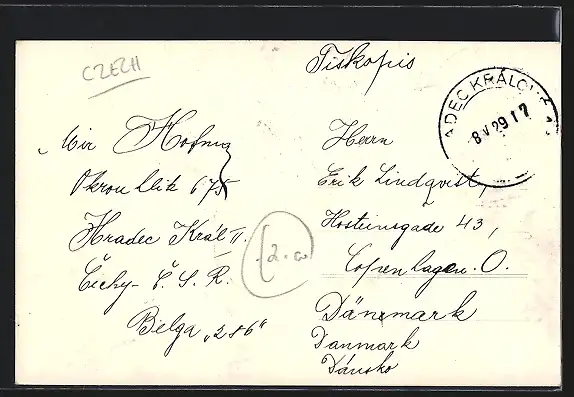 CZECH
Tiskopis
ADEC KRÁLOV
8 V 29 17
Mir Hofma
Okrouhlík 675
Hradec Král II.
Čechy - Č. S. R.
Belga „286"
Herrn
Erik Lindqvist,
43,
Copenhagen. O.
Dänemark
Danmark
Dánsko